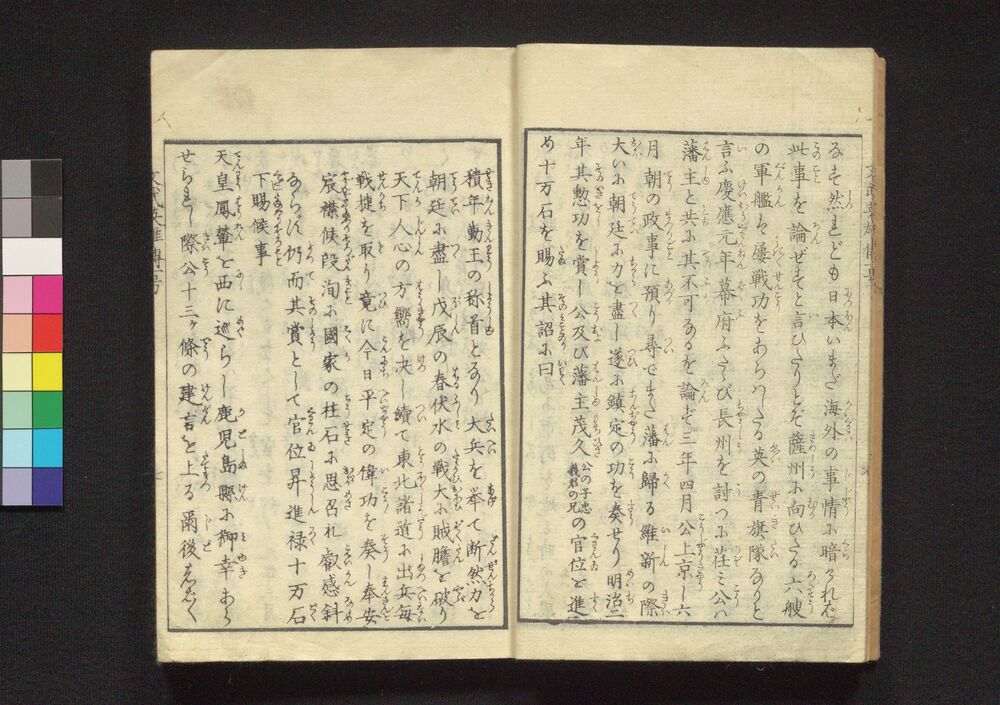 なす然れども日本いまだ海外の事情に暗ければ
此事を論ぜずと言ひたりとぞ薩州に向ひたる六艘
の軍艦は屡戦功をあらハしたる英の青旗隊なりと
言ふ慶應元年幕府ふたゝび長州を討つに莅ミ公ハ
藩主と共に其不可なるを論ず三年四月公上京し六
月 朝の政事に預り尋でまた藩に歸る維新の際
大いに朝廷に力を盡し遂に鎮定の功を奏せり明治二
年其勲功を賞し公及び藩主茂久公の子忠義君の兄の官位を進
め十万石を賜ふ其詔に曰
積年勤王の称首となり 大兵を挙て断然力を
朝廷に盡し戊辰の春伏水の戰大に賊膽を破り
天下人心の方嚮を決し續て東北諸道に出兵毎
戦捷を取り竟に今日平定の偉功を奏し奉安
宸襟候段洵に國家の柱石に思召れ叡感斜
ならず仍而其賞として官位昇進禄十万石
下賜候事
天皇鳳輦を西に巡らし鹿児島縣に御幸あら
せられし際公十三ヶ條の建言を上る爾後
文武英雄傳二号